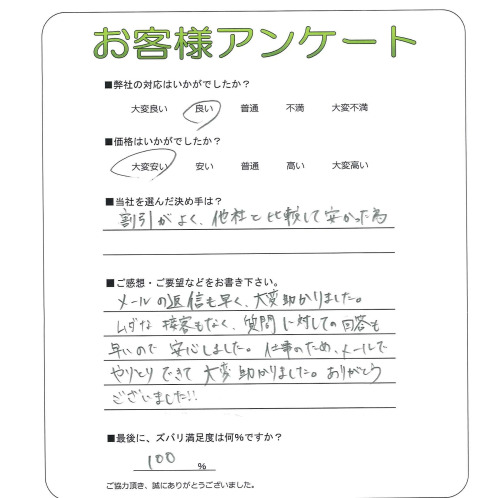 お客様アンケート
■弊社の対応はいかがでしたか？
大変良い 良い 普通 不満 大変不満
■価格はいかがでしたか？
大変安い 安い 普通 高い 大変高い
■当社を選んだ決め手は？
割引がよく、他社と比較して安かった為
■ご感想・ご要望などをお書き下さい。
メールの返信も早く、大変助かりました。
ムダな接客もなく、質問に対しての回答も
早いので安心しました。仕事のため、メールで
やりとりできて大変助かりました。ありがとう
ございました!!
■最後に、ズバリ満足度は何%ですか？
100 %
ご協力頂き、誠にありがとうございました。